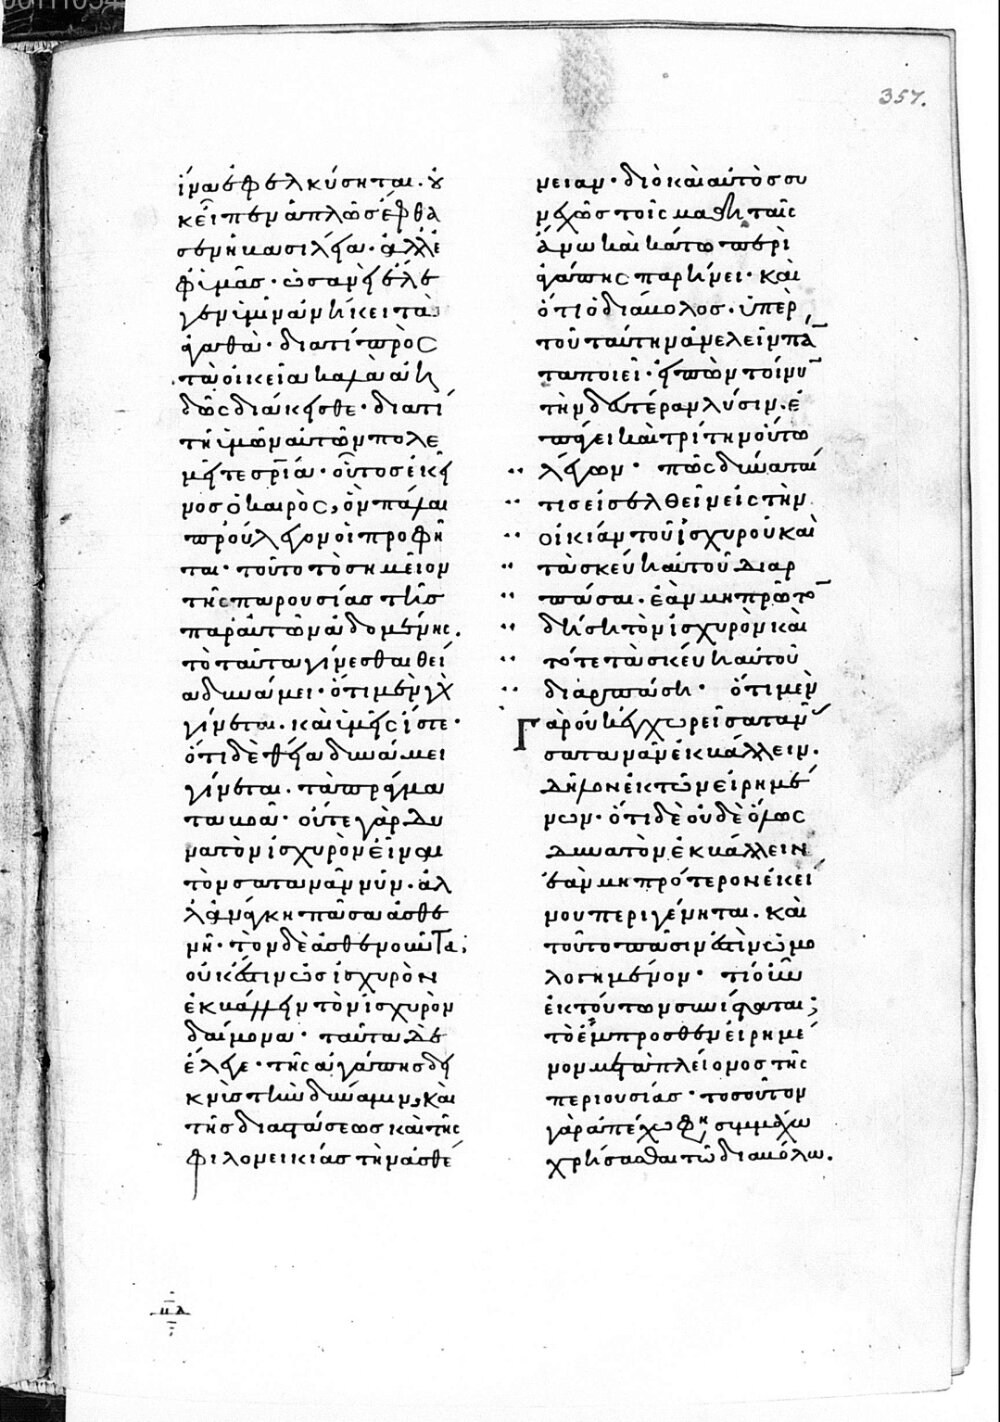 357.
ἵνα ἐφελκύσηται· οὐ
κ εἶπεν ἁπλῶς ἔφθα
σεν ἡ βασιλεία· ἀλλ' ἐ
φ' ὑμᾶς· ὡσανεὶ ἔλε
γεν ὑμῖν ἥκει τὰ
ἀγαθά· διατί πρὸς
τὰ οἰκεῖα καλὰ ἀη
δῶς διάκεισθε· διατί
τῇ ὑμῶν αὐτῶν πολε
μεῖτε σρίᾳ· οὗτος ἐκεῖ
νος ὁ καιρὸς, ὃν πάλαι
προὔλεγον οἱ προφῆ
ται· τοῦτο τὸ σημεῖον
τῆς παρουσίας τῆς
παρ' αὐτῶν ἀδομένης.
τὸ ταῦτα γίνεσθαι θεί
α δυνάμει· ὅτι μὲν γὰρ
γίνεται. καὶ ὑμεῖς ἴστε·
ὅτι δὲ θεία δυνάμει
γίνεται. τὰ πράγμα
τα βοᾶ· οὔτε γὰρ δυ
νατὸν ἰσχυρὸν εἶναι
τὸν σατανᾶν νῦν· ἀλ
λ' ἀνάγκη πᾶσα ἀσθε
νῆ· τὸν δὲ ἀσθενοῦντα;
οὐκ ἔστιν ὡς ἰσχυρὸν
ἐκβάλλειν τὸν ἰσχυρὸν
δαίμονα· ταῦτα δὲ
ἔλεγε· τῆς ἀγάπης δει
κνὺς τὴν δύναμιν, καὶ
τῆς διαστάσεως καὶ τῆς
φιλονεικίας τὴν ἀσθέ
νειαν· διὸ καὶ αὐτὸς συ
νεχῶς τοῖς μαθηταῖς
ἄνω καὶ κάτω περὶ
ἀγάπης παρήνει· καὶ
ὅτι ὁ διάβολος· ὑπὲρ
τοῦ ταύτην ἀνελεῖν πά
τα ποιεῖ· εἰπὼν τοίνυ
τὴν δευτέραν λύσιν. ἐ
πάγει καὶ τρίτην οὕτω
λέγων· πῶς δύναταί
τις εἰσελθεῖν εἰς τὴν
οἰκίαν τοῦ ἰσχυροῦ καὶ
τὰ σκεύη αὐτοῦ διαρ
πάσαι. ἐὰν μὴ πρῶτο
δήση τὸν ἰσχυρὸν καὶ
τότε τὰ σκεύη αὐτοῦ
διαρπάση· ὅτι μὲν
Γὰρ οὐκ ἐγχωρεῖ σαταν
σατανᾶν ἐκβάλλειν.
δῆλον ἐκ τῶν εἰρημέ
νων· ὅτι δὲ οὐδὲ ὅλως
δυνατὸν ἐκβάλλειν
ἐὰν μὴ πρότερον ἐκεί
νου περιγένηται. καὶ
τοῦτο πᾶσιν ἐστὶν ὡμο
λογημένον· τί οὖν
ἐκ τούτων συνίσταται;
τὸ ἔμπροσθεν εἰρημέ
νον μετὰ πλείονος τῆς
περιουσίας· τοσοῦτον
γὰρ ἀπέχω φησι, συμμάχω
χρήσασθαι τῶ διαβόλω.
μδ